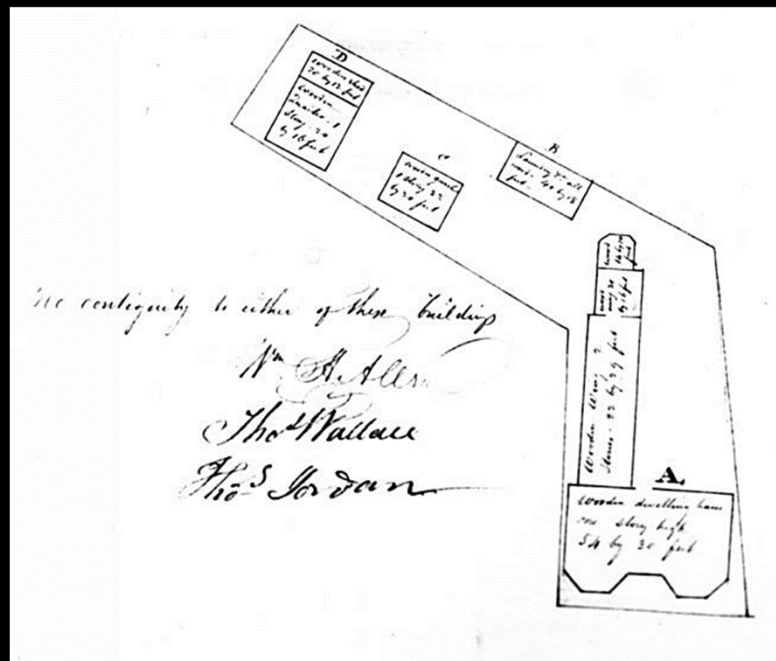 D
Wooden shed
20 by 12 feet
Wooden
1
Story - 20
by 16 feet
C
1 Story 22
by 20 feet
B
40 by 18
feet
Wood
Wood
Wooden Wing 2
Stories - 22 by 29 feet
A.
Wooden dwelling house
one story high
54 by 30 feet
no contiguity to either of these buildings
Wm H. Allen
Thos Wallace
Thos Jordan